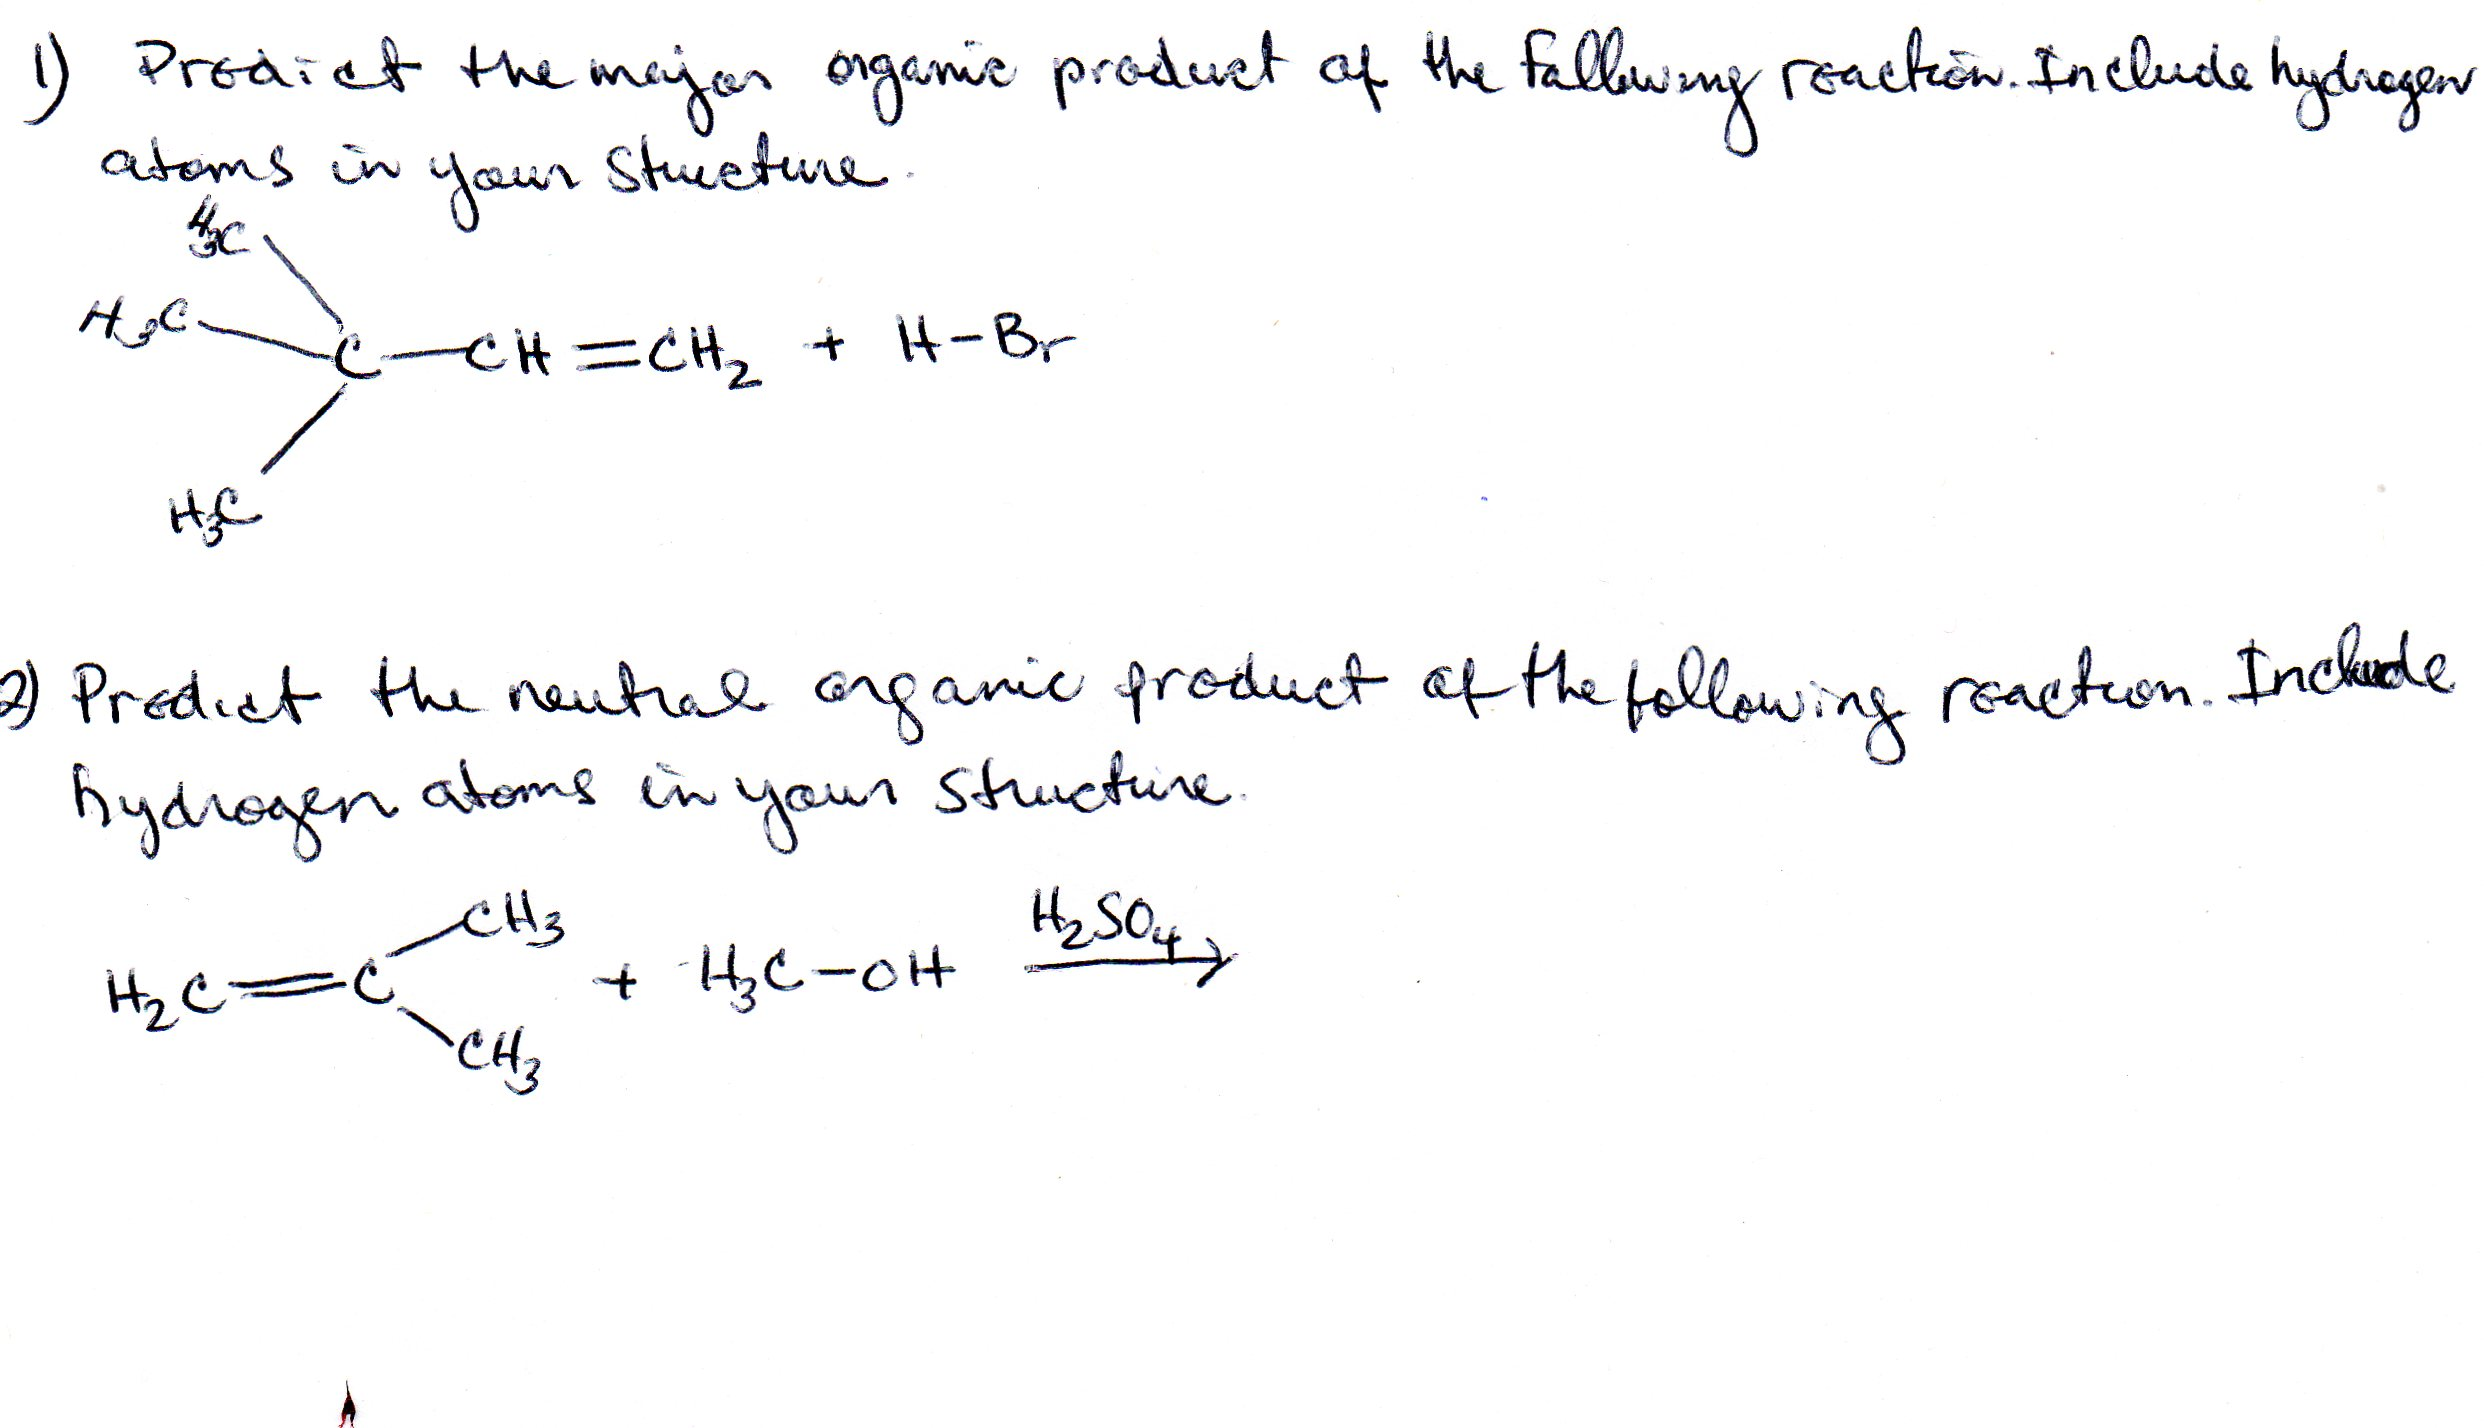 1) Predict the major organic product of the following reaction. Include hydrogen
atoms in your structure.
H3C
H3C
C-CH=CH2 + H-Br
H3C
2) Predict the neutral organic product of the following reaction. Include
hydrogen atoms in your structure.
CH3 H2SO4
H2C=C + H3C-OH →
CH3